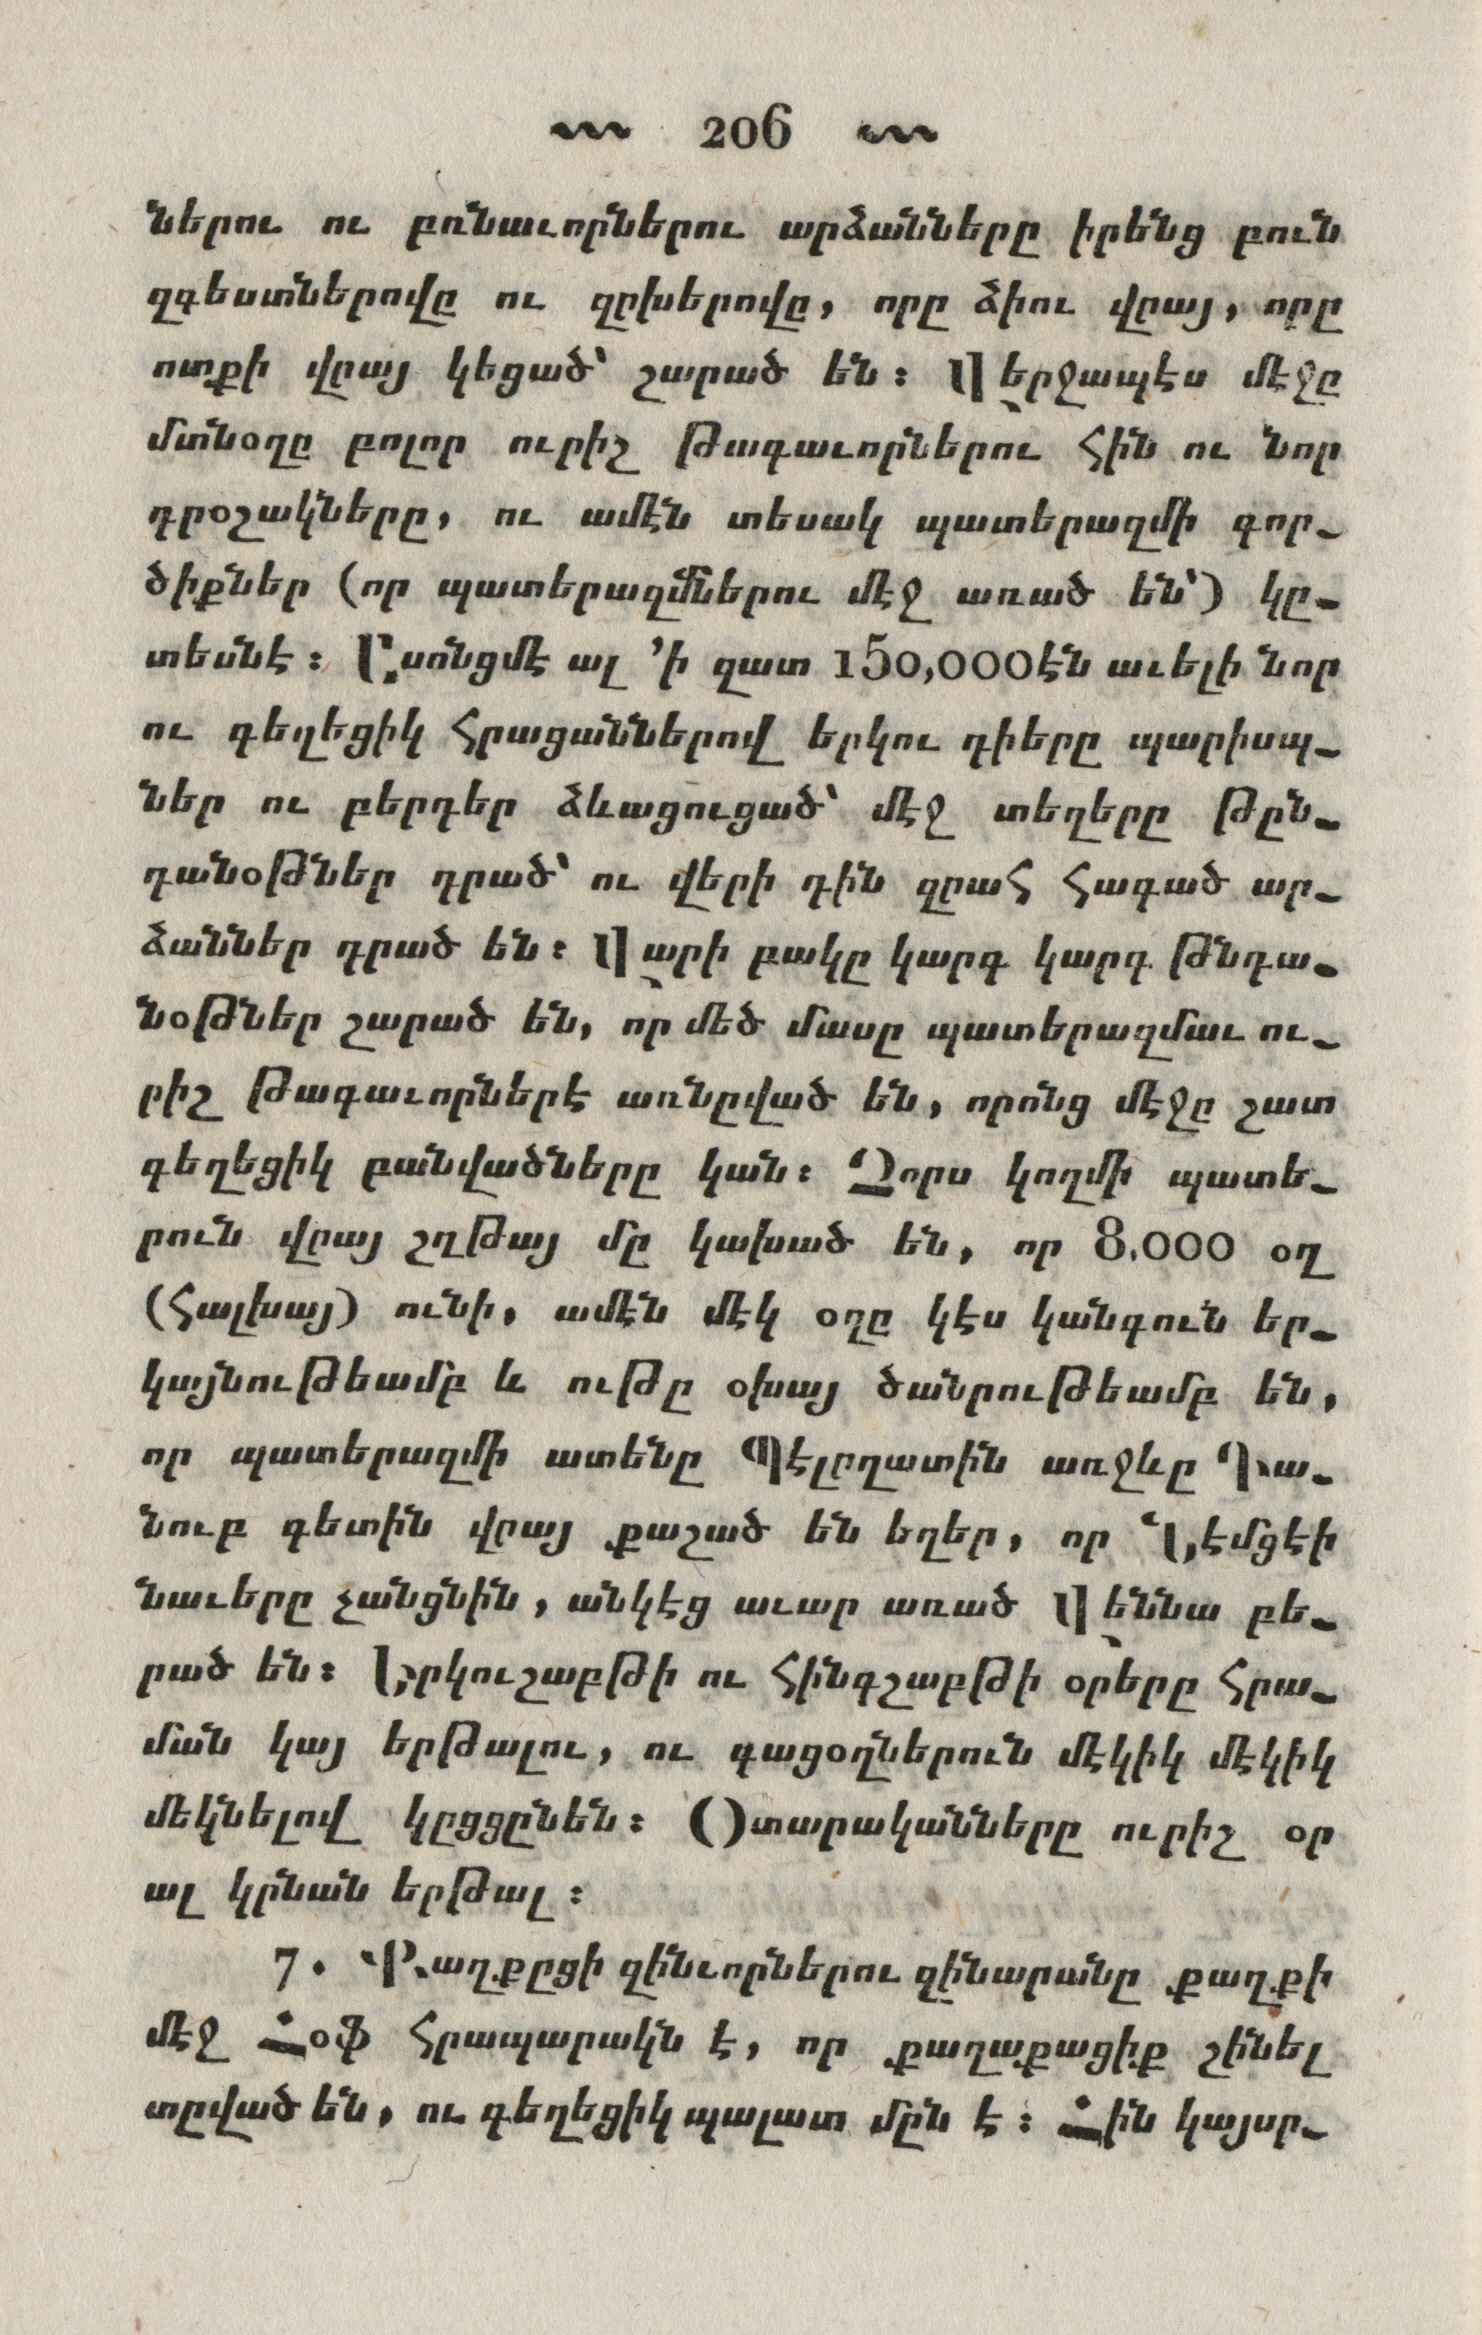 206
ներու ու բռնաւորներու արձանները իրենց բուն
զգեստներովը ու զըխերովը, որը ձիու վըրայ, որը
ոտքի վըրայ կեցած՝ շարած են։ Վերջապէս մէջը
մտնօղը բոլոր ուրիշ Թագաւորներու հին ու նոր
դրօշակները, ու ամէն տեսակ պատերազմի գոր-
ծիքներ (որ պատերազմներու մէջ առած են՝) կը-
տեսնէ։ Ըսոնցմէ ալ ՚ի զատ 150,000էն աւելի նոր
ու գեղեցիկ հրացաններով երկու դիերը պարիսպ-
ներ ու բերդեր ձևացուցած՝ մէջ տեղերը թըն-
դանօթներ դրած՝ ու վերի դին զըահ հագած ար-
ձաններ դրած են։ Վարի բակը կարգ կարգ թնդա-
նօթներ շարած են, որ մեծ մասը պատերազմաւ ու-
րիշ Թագաւորներէ առնըված են, որոնց մէջը շատ
գեղեցիկ բանվածները կան։ Չորս կողմի պատե-
րուն վըրայ շղթայ մը կախած են, որ 8,000 օղ
(հալխայ) ունի, ամէն մէկ օղը կէս կանգուն եր-
կայնութեամբ և ութը օխայ ծանրութեամբ են,
որ պատերազմի ատենը Պէլըղատին առջևը Դա-
նուբ գետին վըրայ քաշած են եղեր, որ Նէմցէի
նաւերը չանցնին, անկէց աւար առած Վէննա բե-
րած են։ Երկուշաբթի ու հինգշաբթի օրերը հրա-
ման կայ երթալու, ու գացօղներուն մէկիկ մէկիկ
մեկնելով կըցցընեն։ Օտարականները ուրիշ օր
ալ կրնան երթալ։
7. Քաղքըցի զինւորներու զինարանը քաղքի
մէջ Հօֆ հրապարակն է, որ քաղաքացիք շինել
տըված են, ու գեղեցիկ պալատ մըն է։ Հին կայսր-